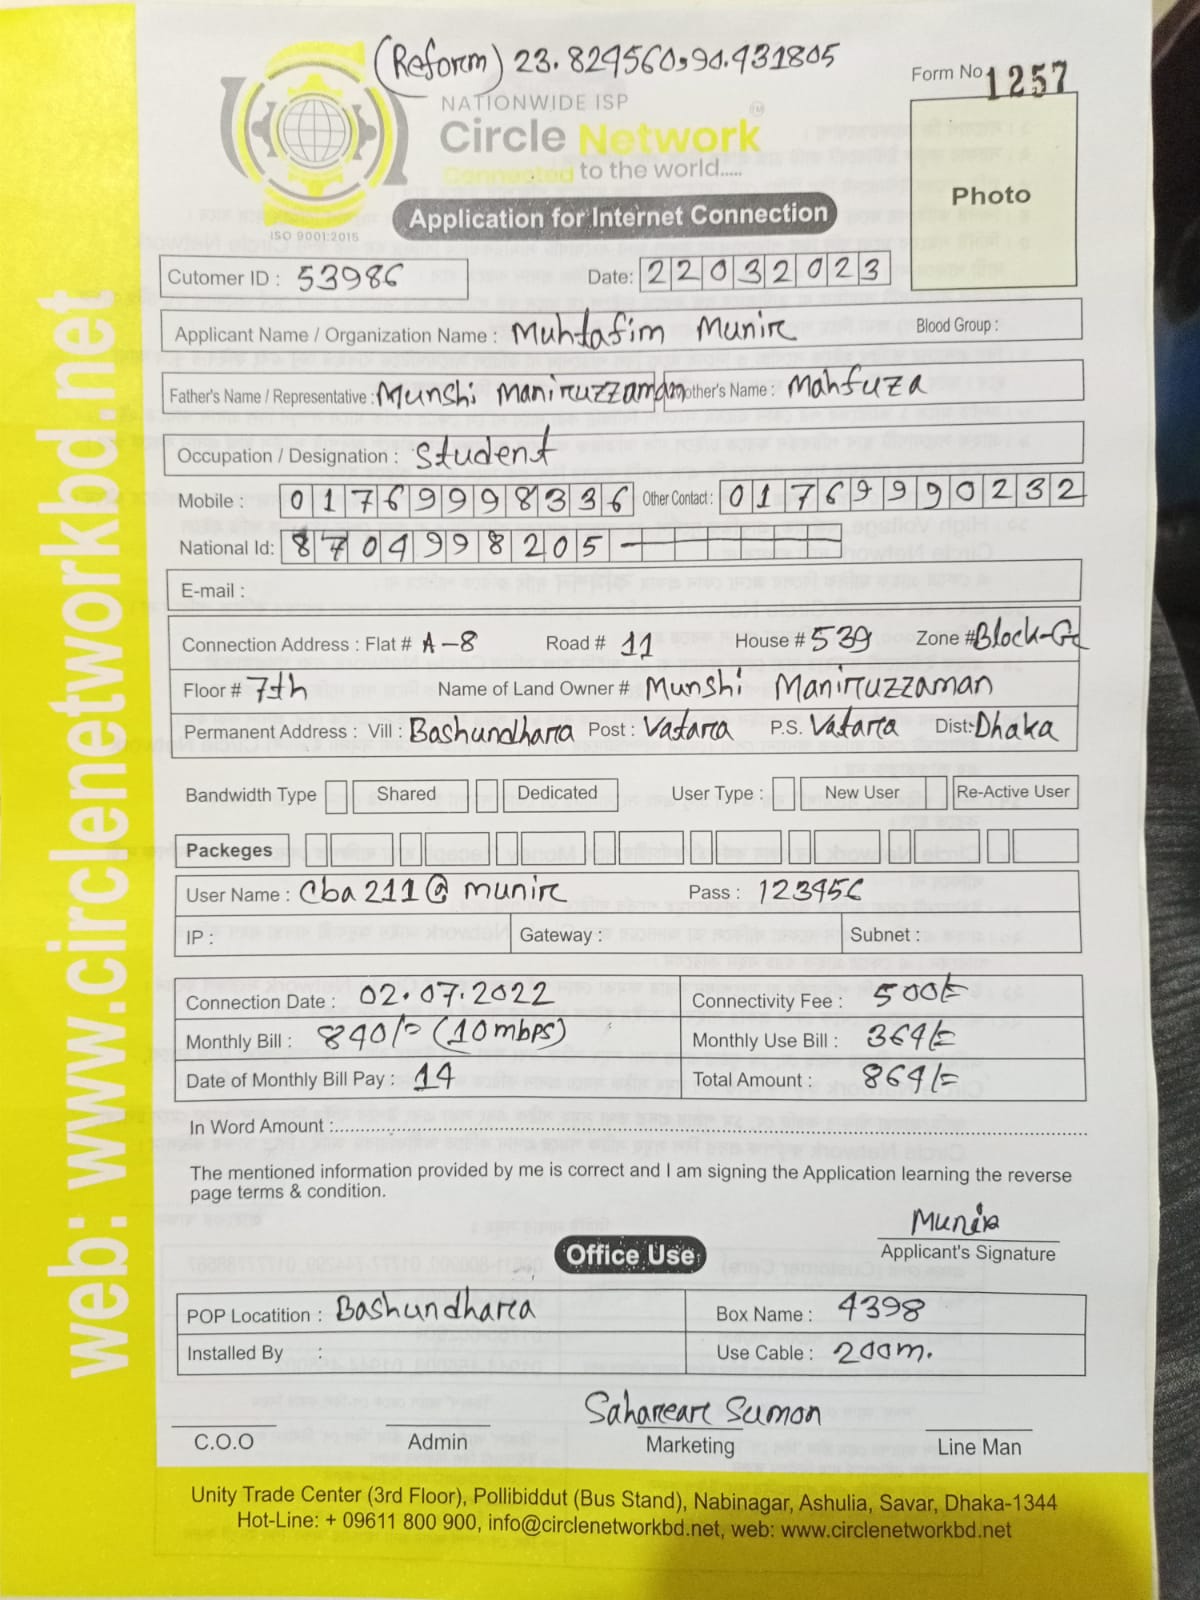 (Reform) 23.824560,90.431805
Form No 1257
NATIONWIDE ISP
Circle Network
Connected to the world.....
Photo
ISO 9001:2015
Application for Internet Connection
Cutomer ID : 53986
Date: 22032023
Applicant Name / Organization Name : Muhtafim Munir
Blood Group :
Father's Name / Representative : Munshi Maniruzzaman
Mother's Name : Mahfuza
Occupation / Designation : Student
Mobile : 01769998336 Other Contact : 01769990232
National Id: 8704998205-
E-mail :
Connection Address : Flat # A-8 Road # 11 House # 539 Zone # Block-G
Floor # 7th Name of Land Owner # Munshi Maniruzzaman
Permanent Address : Vill : Bashundhara Post : Vatara P.S. Vatara Dist:- Dhaka
Bandwidth Type Shared Dedicated User Type : New User Re-Active User
Packeges
User Name : Cba211@munir Pass : 123456
IP : Gateway : Subnet :
Connection Date : 02.07.2022 Connectivity Fee : 500/=
Monthly Bill : 840/= (10mbps) Monthly Use Bill : 364/=
Date of Monthly Bill Pay : 14 Total Amount : 864/=
In Word Amount :
The mentioned information provided by me is correct and I am signing the Application learning the reverse
page terms & condition.
Munir
Applicant's Signature
Office Use
POP Locatition : Bashundhara Box Name : 4398
Installed By : Use Cable : 200m.
Sahareare Sumon
C.O.O Admin Marketing Line Man
Unity Trade Center (3rd Floor), Pollibiddut (Bus Stand), Nabinagar, Ashulia, Savar, Dhaka-1344
Hot-Line: + 09611 800 900, info@circlenetworkbd.net, web: www.circlenetworkbd.net
web: www.circlenetworkbd.net